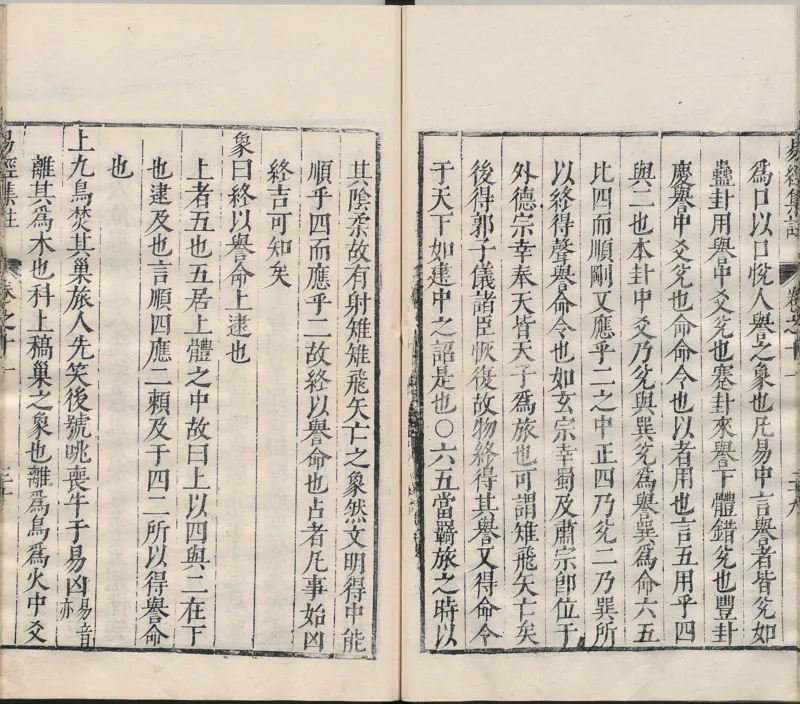 爲口以口悅人譽之象也凡易中言譽者皆兌如
蠱卦用譽中爻兌也蹇卦來譽下體錯兌也豐卦
慶譽中爻兌也命命令也以者用也言五用乎四
與二也本卦中爻乃兌與巽兌爲譽巽爲命六五
比四而順剛又應乎二之中正四乃兌二乃巽所
以終得聲譽命令也如玄宗幸蜀及肅宗卽位于
外德宗幸奉天皆天子爲旅也可謂雉飛矢亡矣
後得郭子儀諸臣恢復故物終得其譽又得命令
于天下如建中之詔是也〇六五當羇旅之時以
其陰柔故有射雉雉飛矢亡之象然文明得中能
順乎四而應乎二故終以譽命也占者凡事始凶
終吉可知矣
象曰終以譽命上逮也
上者五也五居上體之中故曰上以四與二在下
也逮及也言順四應二賴及于四二所以得譽命
也
上九鳥焚其巢旅人先笑後號咷喪牛于易凶易音亦
離其爲木也科上稿巢之象也離爲鳥爲火中爻
易經集註 卷之十一 三十